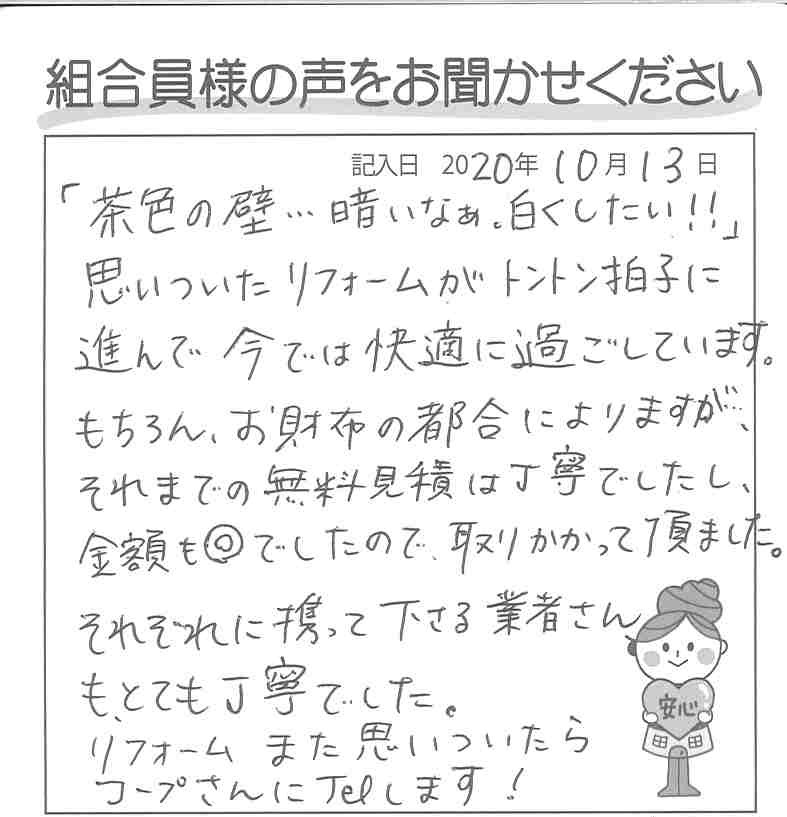 組合員様の声をお聞かせください
記入日 2020年10月13日
「茶色の壁…暗いなぁ。白くしたい!!」
思いついたリフォームがトントン拍子に
進んで今では快適に過ごしています。
もちろん、お財布の都合によりますが…、
それまでの無料見積は丁寧でしたし、
金額も◎でしたので、取りかかって頂ました。
それぞれに携って下さる業者さん
も、とても丁寧でした。
リフォームまた思いついたら
コープさんにTelします!
安心